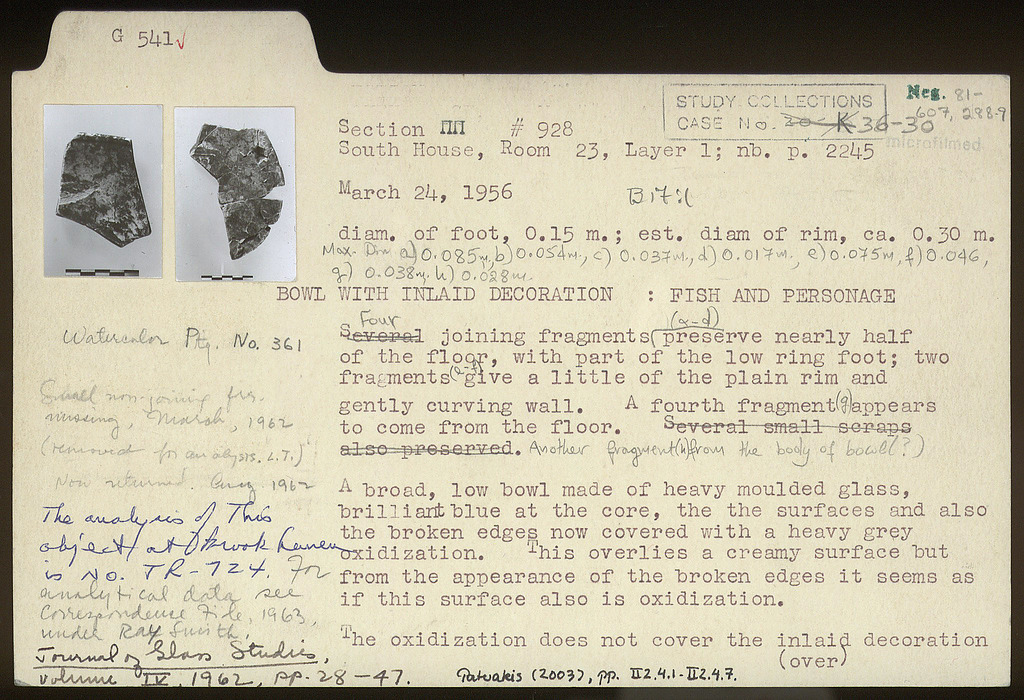 G 541✓
STUDY COLLECTIONS
CASE No. 20-K 36-30
Neg. 81-
607, 288-9
microfilmed
Section ΠΠ # 928
South House, Room 23, Layer 1; nb. p. 2245
March 24, 1956
diam. of foot, 0.15 m.; est. diam of rim, ca. 0.30 m.
Max. Dim a) 0.085m, b) 0.054m, c) 0.037m, d) 0.017m, e) 0.075m, f) 0.046,
g) 0.038m h) 0.028m.
BOWL WITH INLAID DECORATION : FISH AND PERSONAGE
Four (a-d)
Several joining fragments preserve nearly half
of the floor, with part of the low ring foot; two
fragments (e-f) give a little of the plain rim and
gently curving wall. A fourth fragment (g) appears
to come from the floor. Several small scraps
also preserved. Another fragment (h) from the body of bowl (?)
A broad, low bowl made of heavy moulded glass,
brilliant blue at the core, the the surfaces and also
the broken edges now covered with a heavy grey
oxidization. This overlies a creamy surface but
from the appearance of the broken edges it seems as
if this surface also is oxidization.
The oxidization does not cover the inlaid decoration
(over)
Watercolor Ptg. No. 361
Small non-joining frg.
missing, March, 1962
(removed for analysis. L.T.)
Now returned. Aug 1962
The analysis of This
object at
is No. TR-724. For
analytical data see
Correspondence File, 1963,
under Ray Smith.
Journal of Glass Studies,
volume IV, 1962, pp. 28-47.
(2003), pp. II2.4.1-II2.4.7.